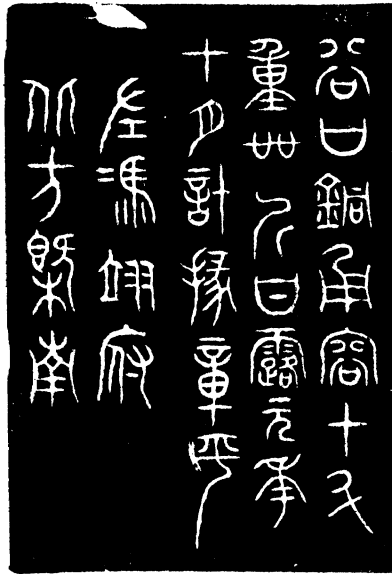 谷口銅甬容十斗
重卌斤甘露元年
十月計掾章平
左馮翊府
北方槩南